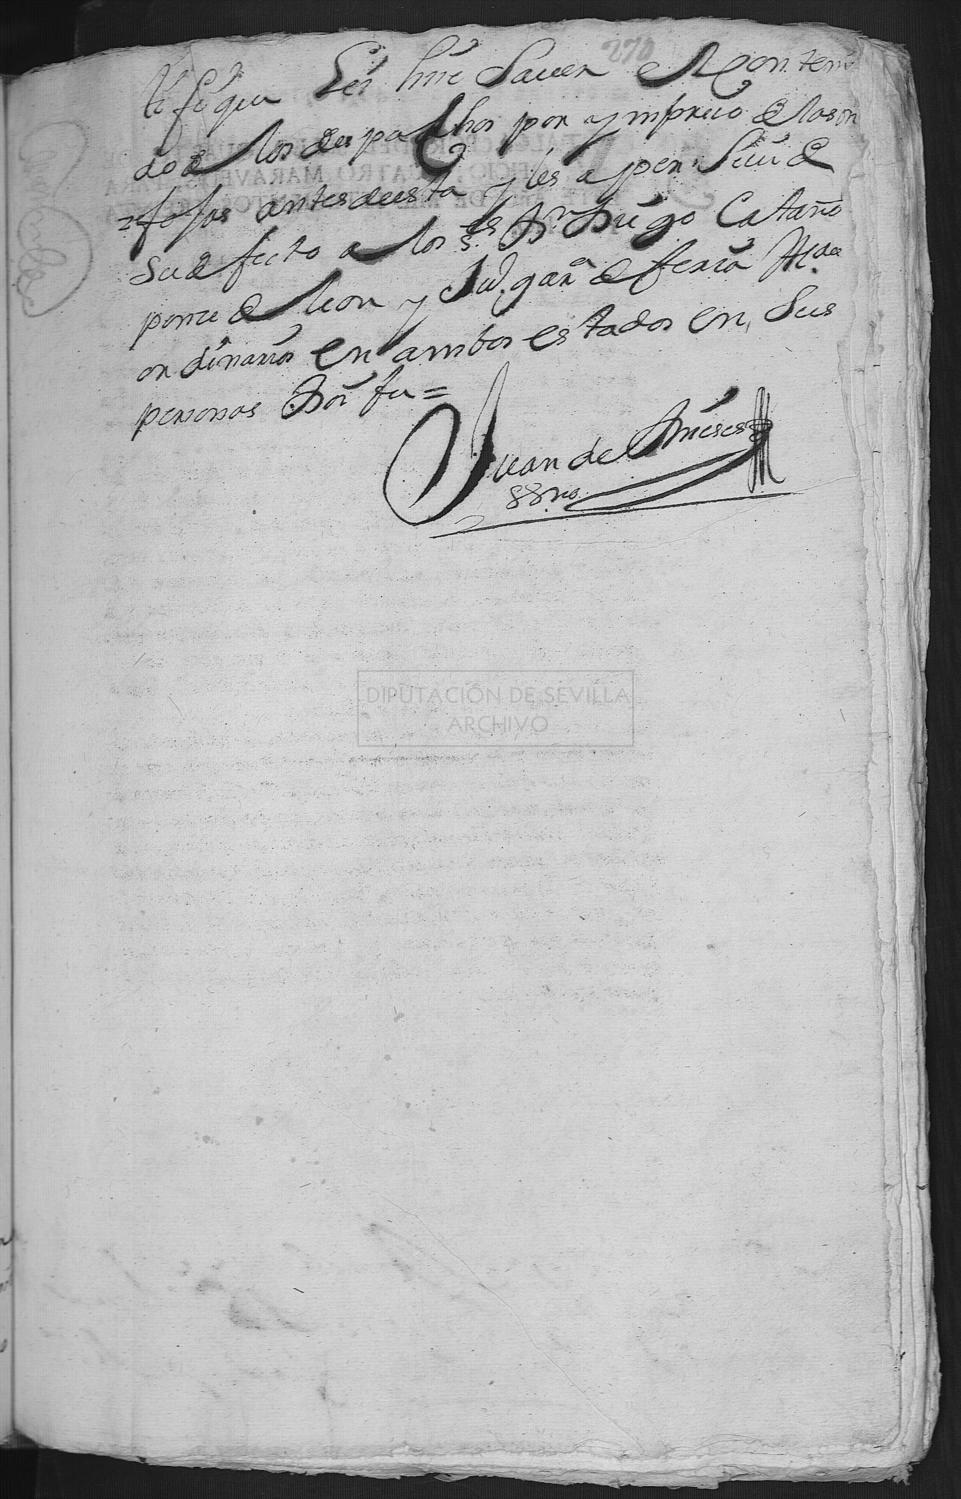 270
tifique Leí hise Saver el Conteni
do de los despachos por y mpreso de las on
ze fojas antes de esta y les aperseví de
su defecto a los s.es D.n Diego Cataño
ponze de leon y Ju.o garª de feria Al.des
ordinarios en ambos estados en, Sus
personas Doi fee =
Juan de
ssno
DIPUTACIÓN DE SEVILLA
ARCHIVO